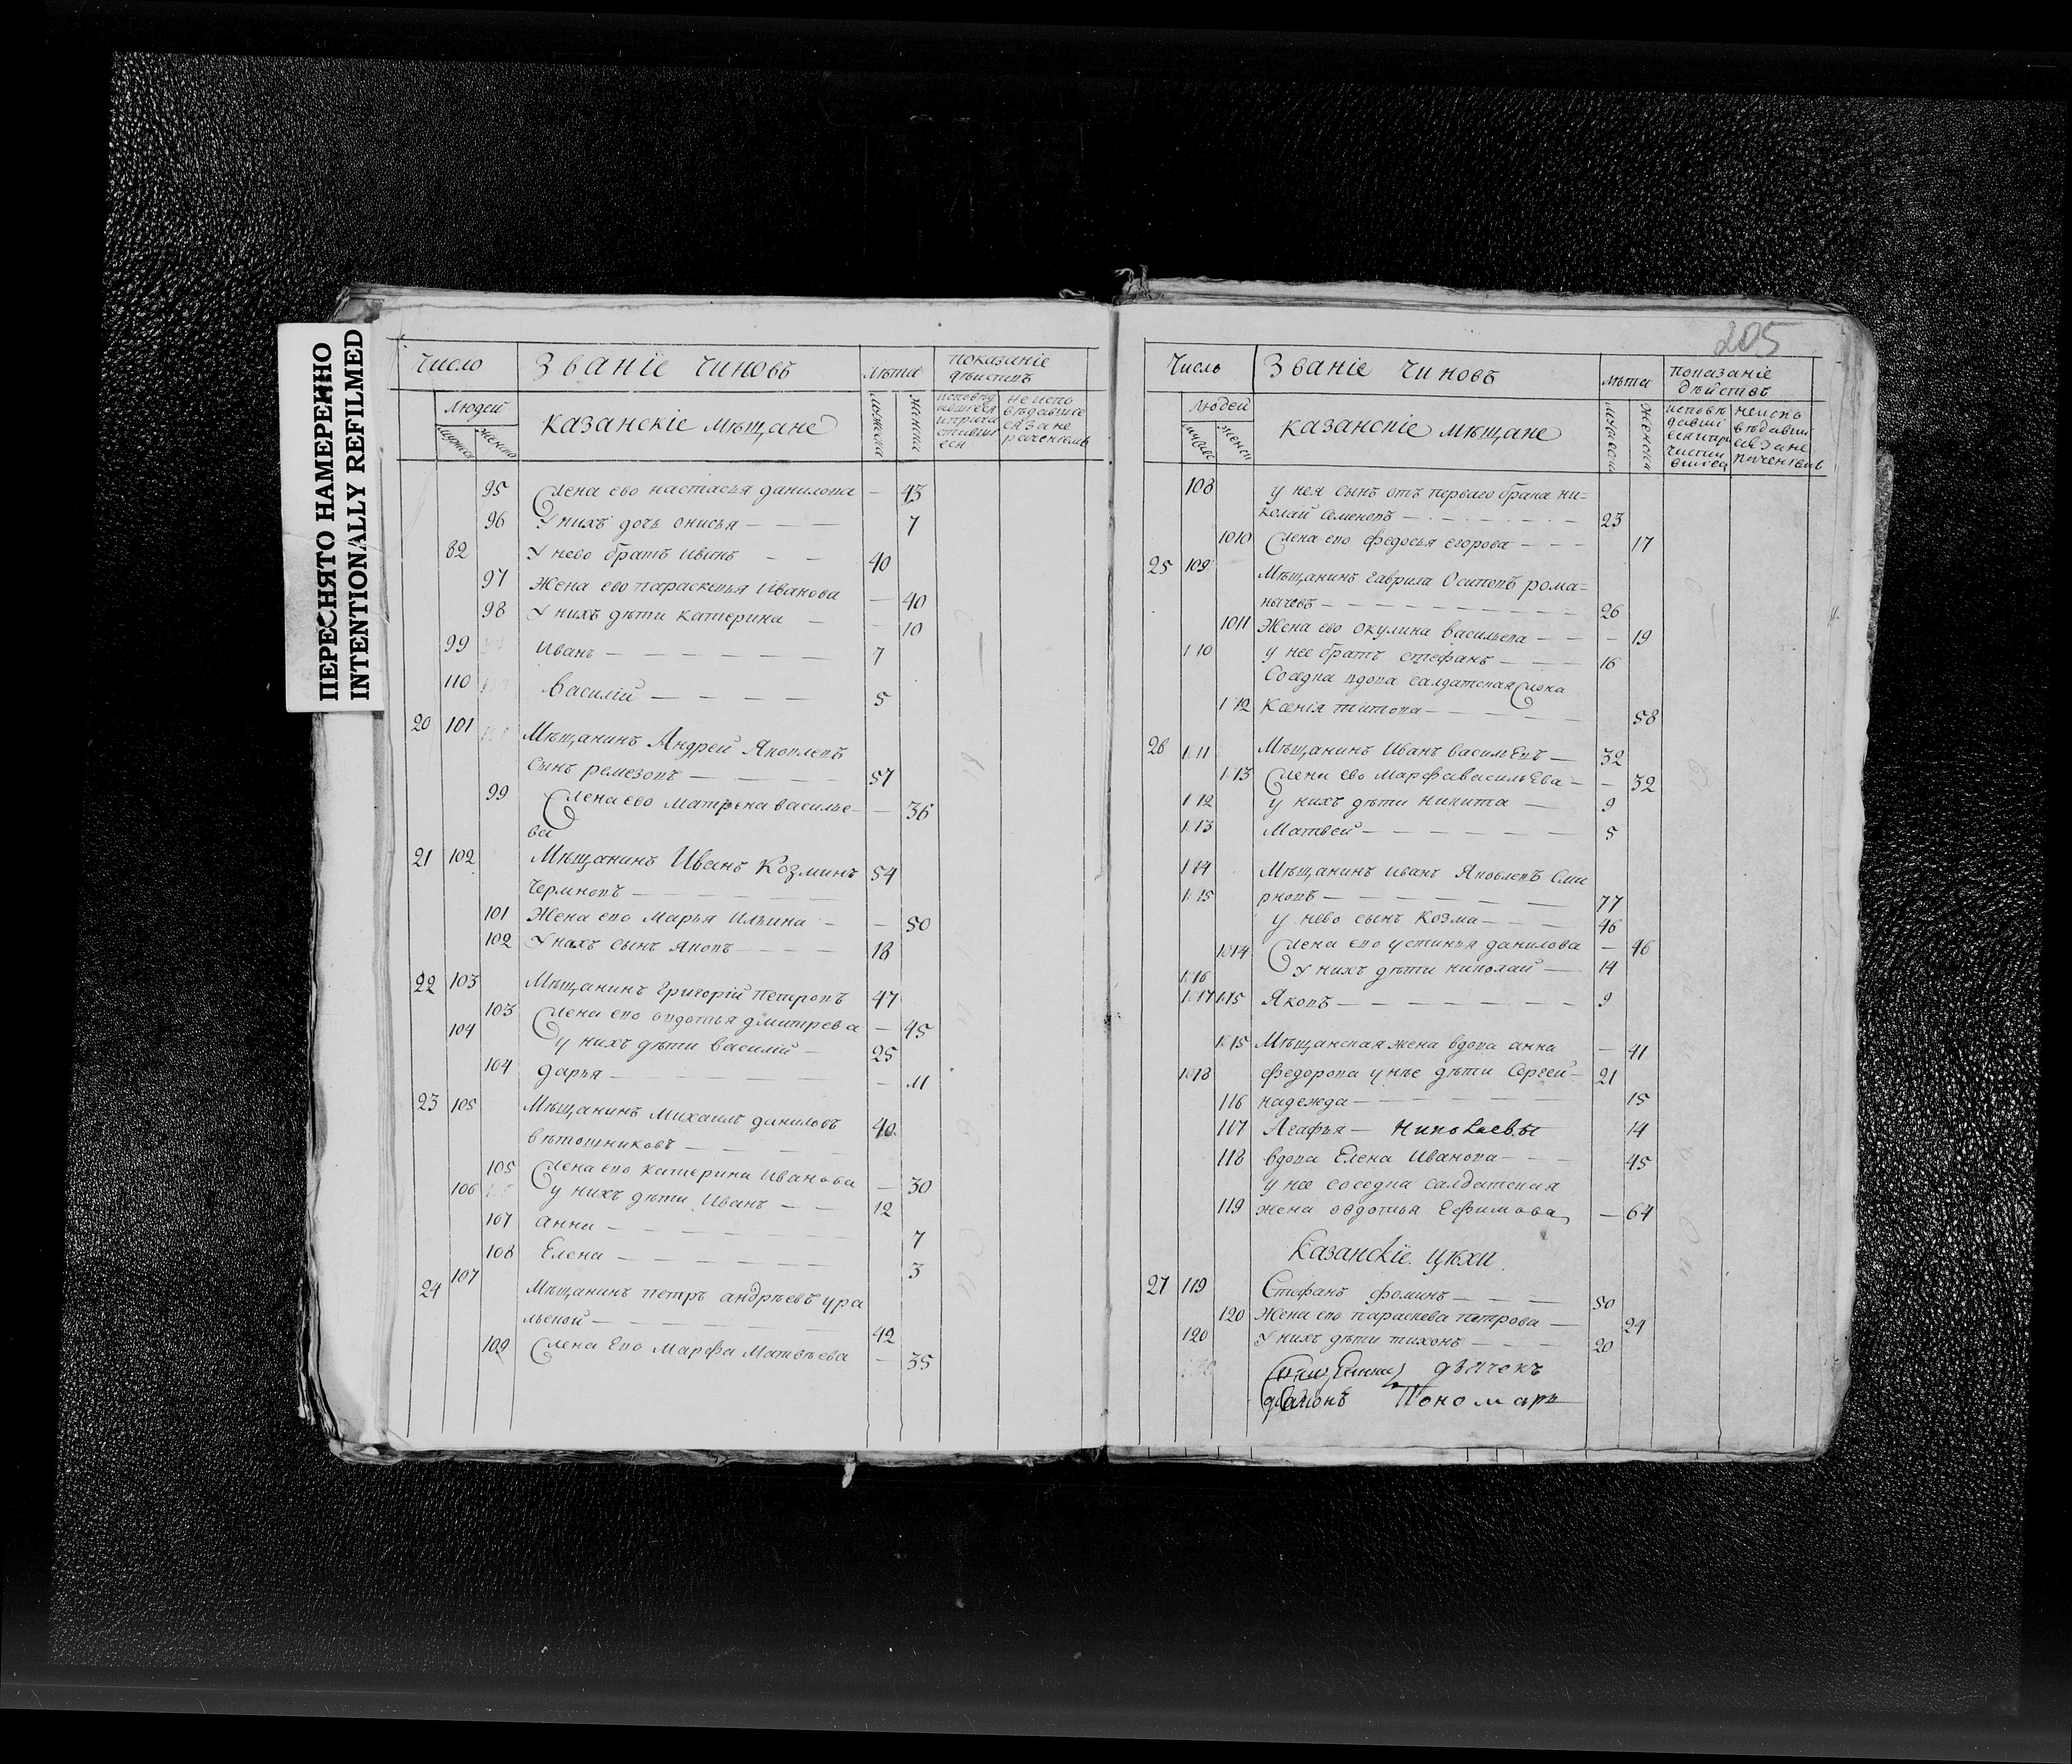 ПЕРЕСНЯТО НАМЕРЕННО
INTENTIONALLY REFILMED
Число Званїе Чиновъ Лѣта показаніе
дѣиствъ
Людей казанскіе мѣщане
95 Жена ево настасья данилова — 43
96 У нихъ дочь онисья — — — 7
82 У нево братъ Иванъ — — 40
97 Жена ево параскевья Иванова — 40
98 У нихъ дѣти катерина — — 10
99 Иванъ — — — — — 7
110 Василїй — — — — 5
20 101 Мѣщанинъ Андрей Яковлевъ
сынъ ремезовъ — — — — 57
99 Жена ево Матрена василье- — 36
ва
21 102 Мѣщанинъ Иванъ Козминъ 54
Чермновъ — — — — —
101 Жена ево Марья Ильина — — 50
102 У нихъ сынъ Яковъ — — — 18
22 103 Мѣщанинъ Григорїй Петровъ 47
103 Жена ево авдотья дмитрева — 45
104 у нихъ дѣти василїй — 25
104 дарья — — — — — — 11
23 105 Мѣщанинъ Михаилъ даниловъ 40
вѣтошниковъ — — — —
105 Жена ево катерина Иванова — 30
106 у нихъ дѣти Иванъ — — 12
107 анна — — — — — — 7
108 Елена — — — — — 3
24 107 Мѣщанинъ петръ андрѣевъ ура
льской — — — — — — 42
109 Жена Ево Марфа Матвѣева — 35
205
Число Званїе Чиновъ лѣта показаніе
дѣйствъ
людей казанскіе мѣщане
108 у нея сынъ отъ перваго брака ни=
колай семеновъ — — — — 23
1010 Жена ево федосья егорова — — — 17
25 109 Мѣщанинъ гаврила Осиповъ рома=
нычевъ — — — — — — — 26
1011 Жена ево окулина васильева — — — 19
110 у нее братъ стефанъ — — — 16
Соедка вдова салдатская жена
112 Ксенія титова — — — — — 58
26 111 Мѣщанинъ Иванъ васильЕвъ — 32
113 Жена ево марфа васильЕва — — 32
112 у нихъ дѣти никита — 9
113 Матвей — — — — — — 5
114 Мѣщанинъ иванъ Яковлевъ Сми
115 рновъ — — — — — — — 77
у нево сынъ козма — — — 46
1014 Жена ево устинья данилова — 46
1016 У нихъ дѣти николай — — 14
1017 1015 Яковъ — — — — — — — 9
1015 Мѣщанская жена вдова анна — 41
1018 федорова у нее дѣти Сергей — 21
116 надежда — — — — — — 15
117 Агафья — николаевы 14
118 вдова Елена Иванова — — — 45
у нее соседка салдатская
119 жена авдотья Ефимова — 64
Казанскїе цѣхи.
27 119 Стефанъ фоминъ — — — 50
120 Жена ево параскева петрова — 24
120 У нихъ дѣти тихонъ — — — 20
дьячекъ
Пономарь